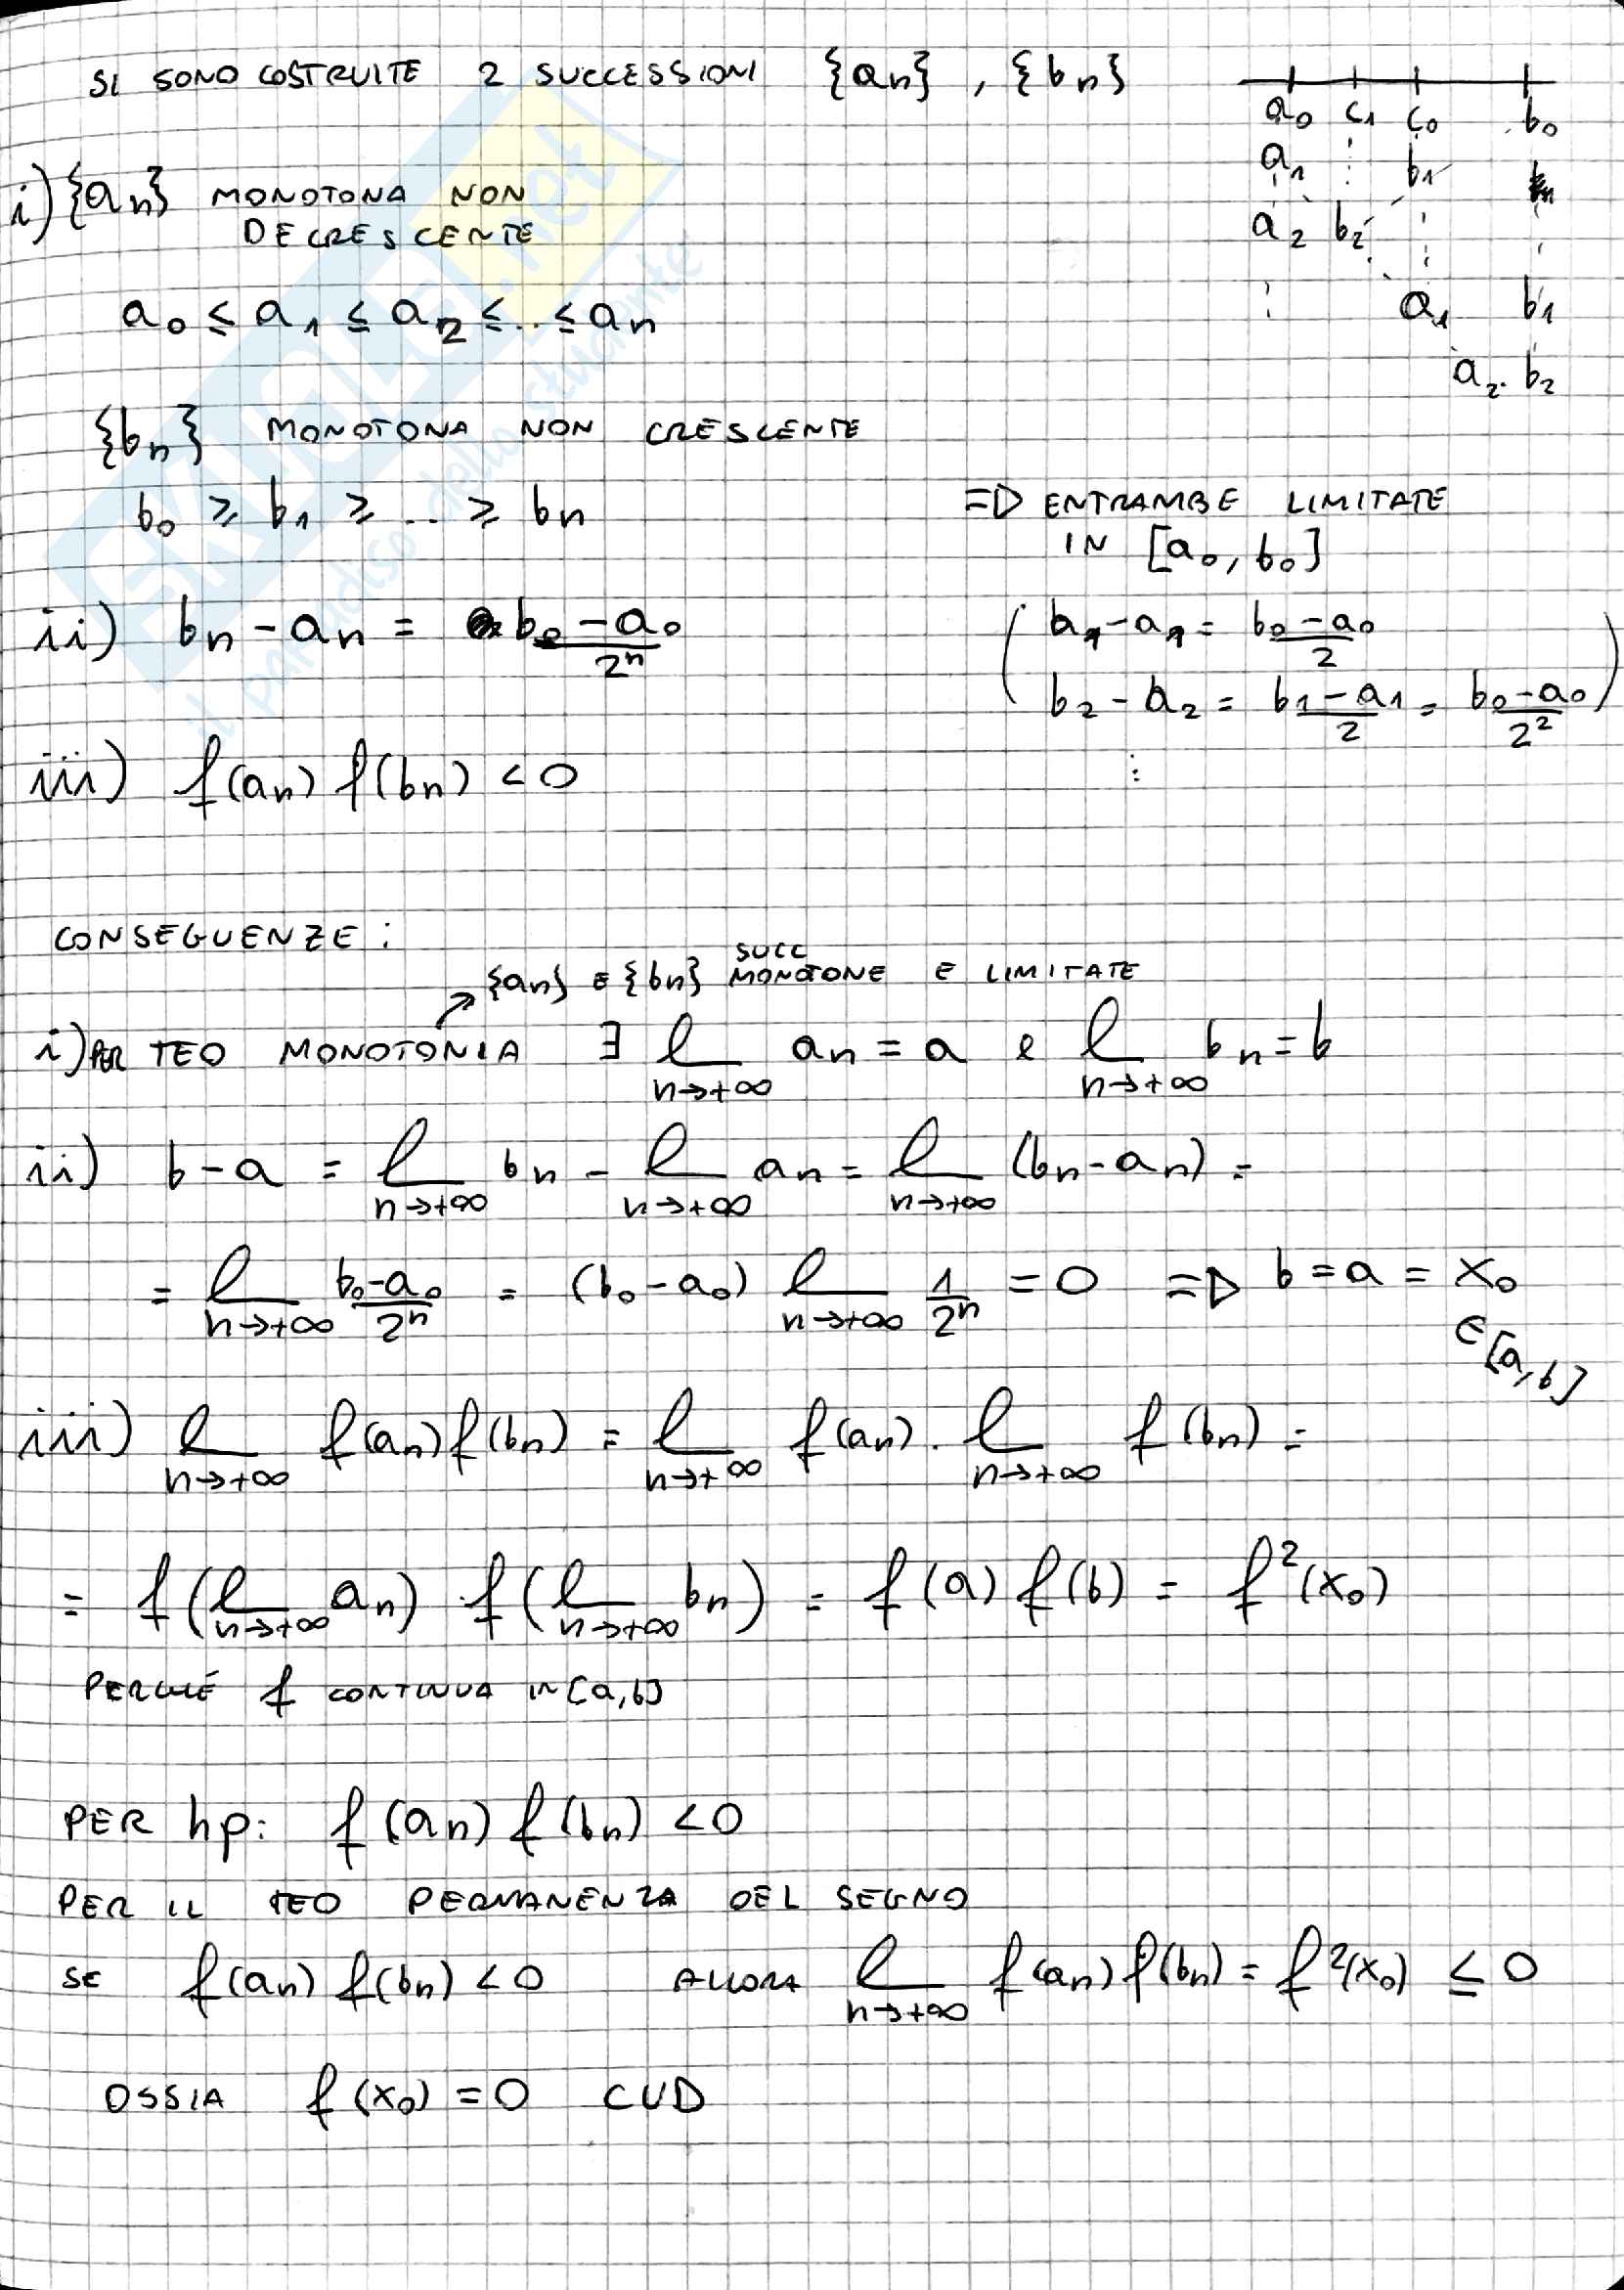 SI SONO COSTRUITE 2 SUCCESSIONI {an}, {bn}
a0 c1 c0 b0
a1 b1
a2 b2
a1 b1
a2 b2
i) {an} MONOTONA NON
DECRESCENTE
a0 ≤ a1 ≤ a2 ≤ .. ≤ an
{bn} MONOTONA NON CRESCENTE
b0 ≥ b1 ≥ .. ≥ bn
=> ENTRAMBE LIMITATE
IN [a0, b0]
ii) bn - an = (b0 - a0)/2^n
( b1 - a1 = (b0 - a0)/2
b2 - a2 = (b1 - a1)/2 = (b0 - a0)/2^2 )
⋮
iii) f(an) f(bn) < 0
CONSEGUENZE:
{an} E {bn} SUCC MONOTONE E LIMITATE
i) PER TEO MONOTONIA ∃ l n→+∞ an = a e l n→+∞ bn = b
ii) b - a = l n→+∞ bn - l n→+∞ an = l n→+∞ (bn - an) =
= l n→+∞ (b0 - a0)/2^n = (b0 - a0) l n→+∞ 1/2^n = 0 => b = a = x0
∈ [a, b]
iii) l n→+∞ f(an) f(bn) = l n→+∞ f(an) · l n→+∞ f(bn) =
= f(l n→+∞ an) · f(l n→+∞ bn) = f(a) f(b) = f²(x0)
PERCHÉ f CONTINUA IN [a, b]
PER hp: f(an) f(bn) < 0
PER IL TEO PERMANENZA DEL SEGNO
SE f(an) f(bn) < 0 ALLORA l n→+∞ f(an) f(bn) = f²(x0) ≤ 0
OSSIA f(x0) = 0 CVD
SKUOLA.net
il paradiso dello studente